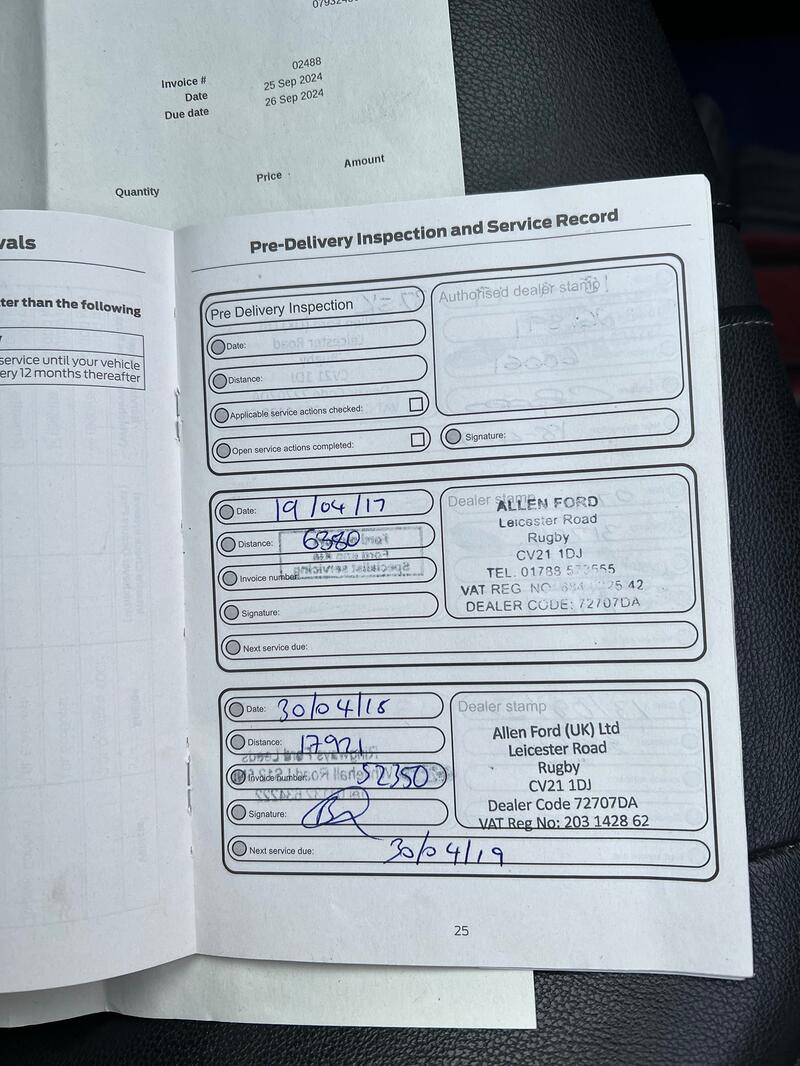 Invoice # 02488
Date 25 Sep 2024
Due date 26 Sep 2024
Quantity Price Amount
vals
ter than the following
service until your vehicle
ery 12 months thereafter
Pre-Delivery Inspection and Service Record
Pre Delivery Inspection
Date:
Distance:
Applicable service actions checked:
Open service actions completed:
Authorised dealer stamp
Signature:
Date: 19/04/17
Distance: 6380
Invoice number:
Signature:
Next service due:
Dealer stamp
ALLEN FORD
Leicester Road
Rugby
CV21 1DJ
TEL. 01788
VAT REG NO 42
DEALER CODE: 72707DA
Date: 30/04/18
Distance: 17921
Invoice number: 52350
Signature:
Next service due: 30/04/19
Dealer stamp
Allen Ford (UK) Ltd
Leicester Road
Rugby
CV21 1DJ
Dealer Code 72707DA
VAT Reg No: 203 1428 62
25